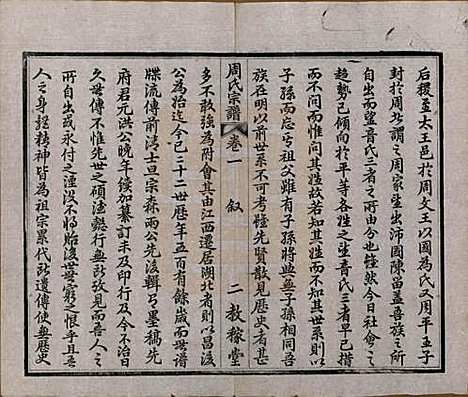 后稷至太王邑於周文王以國為氏又周平王子
封於周北謂之周家堂出沛國陳留蓋吾族之所
自出而望音氏三者之所由分也雖然今日社會之
趨勢已傾於平等各姓之堂音氏三者早已措
而不問而惟問其性族有無歷史与其世系則以
子孫而忘乎祖父雖有子孫將与無子孫同吾
族在明以前世系不可考惟先賢散見歷史者甚
多不敢強為附會其由江西遷居湖北者則以昌後
公為始迄今已三十二世歷年五百有餘歲而世譜
牒流傳前清士旦宗森兩公先後輯之墨稿先
府君元洪公晚年候加纂訂未及付梓行及今不治日
久世傳不惟先世之碩德懿行無於攷見而吾人之
所自出或永付之湮沒不將貽後世無窮之恨乎且吾
人之身軀精神皆為祖宗累代所遺傳使無歷史
周氏宗譜
卷一
敘
二
敦稼堂